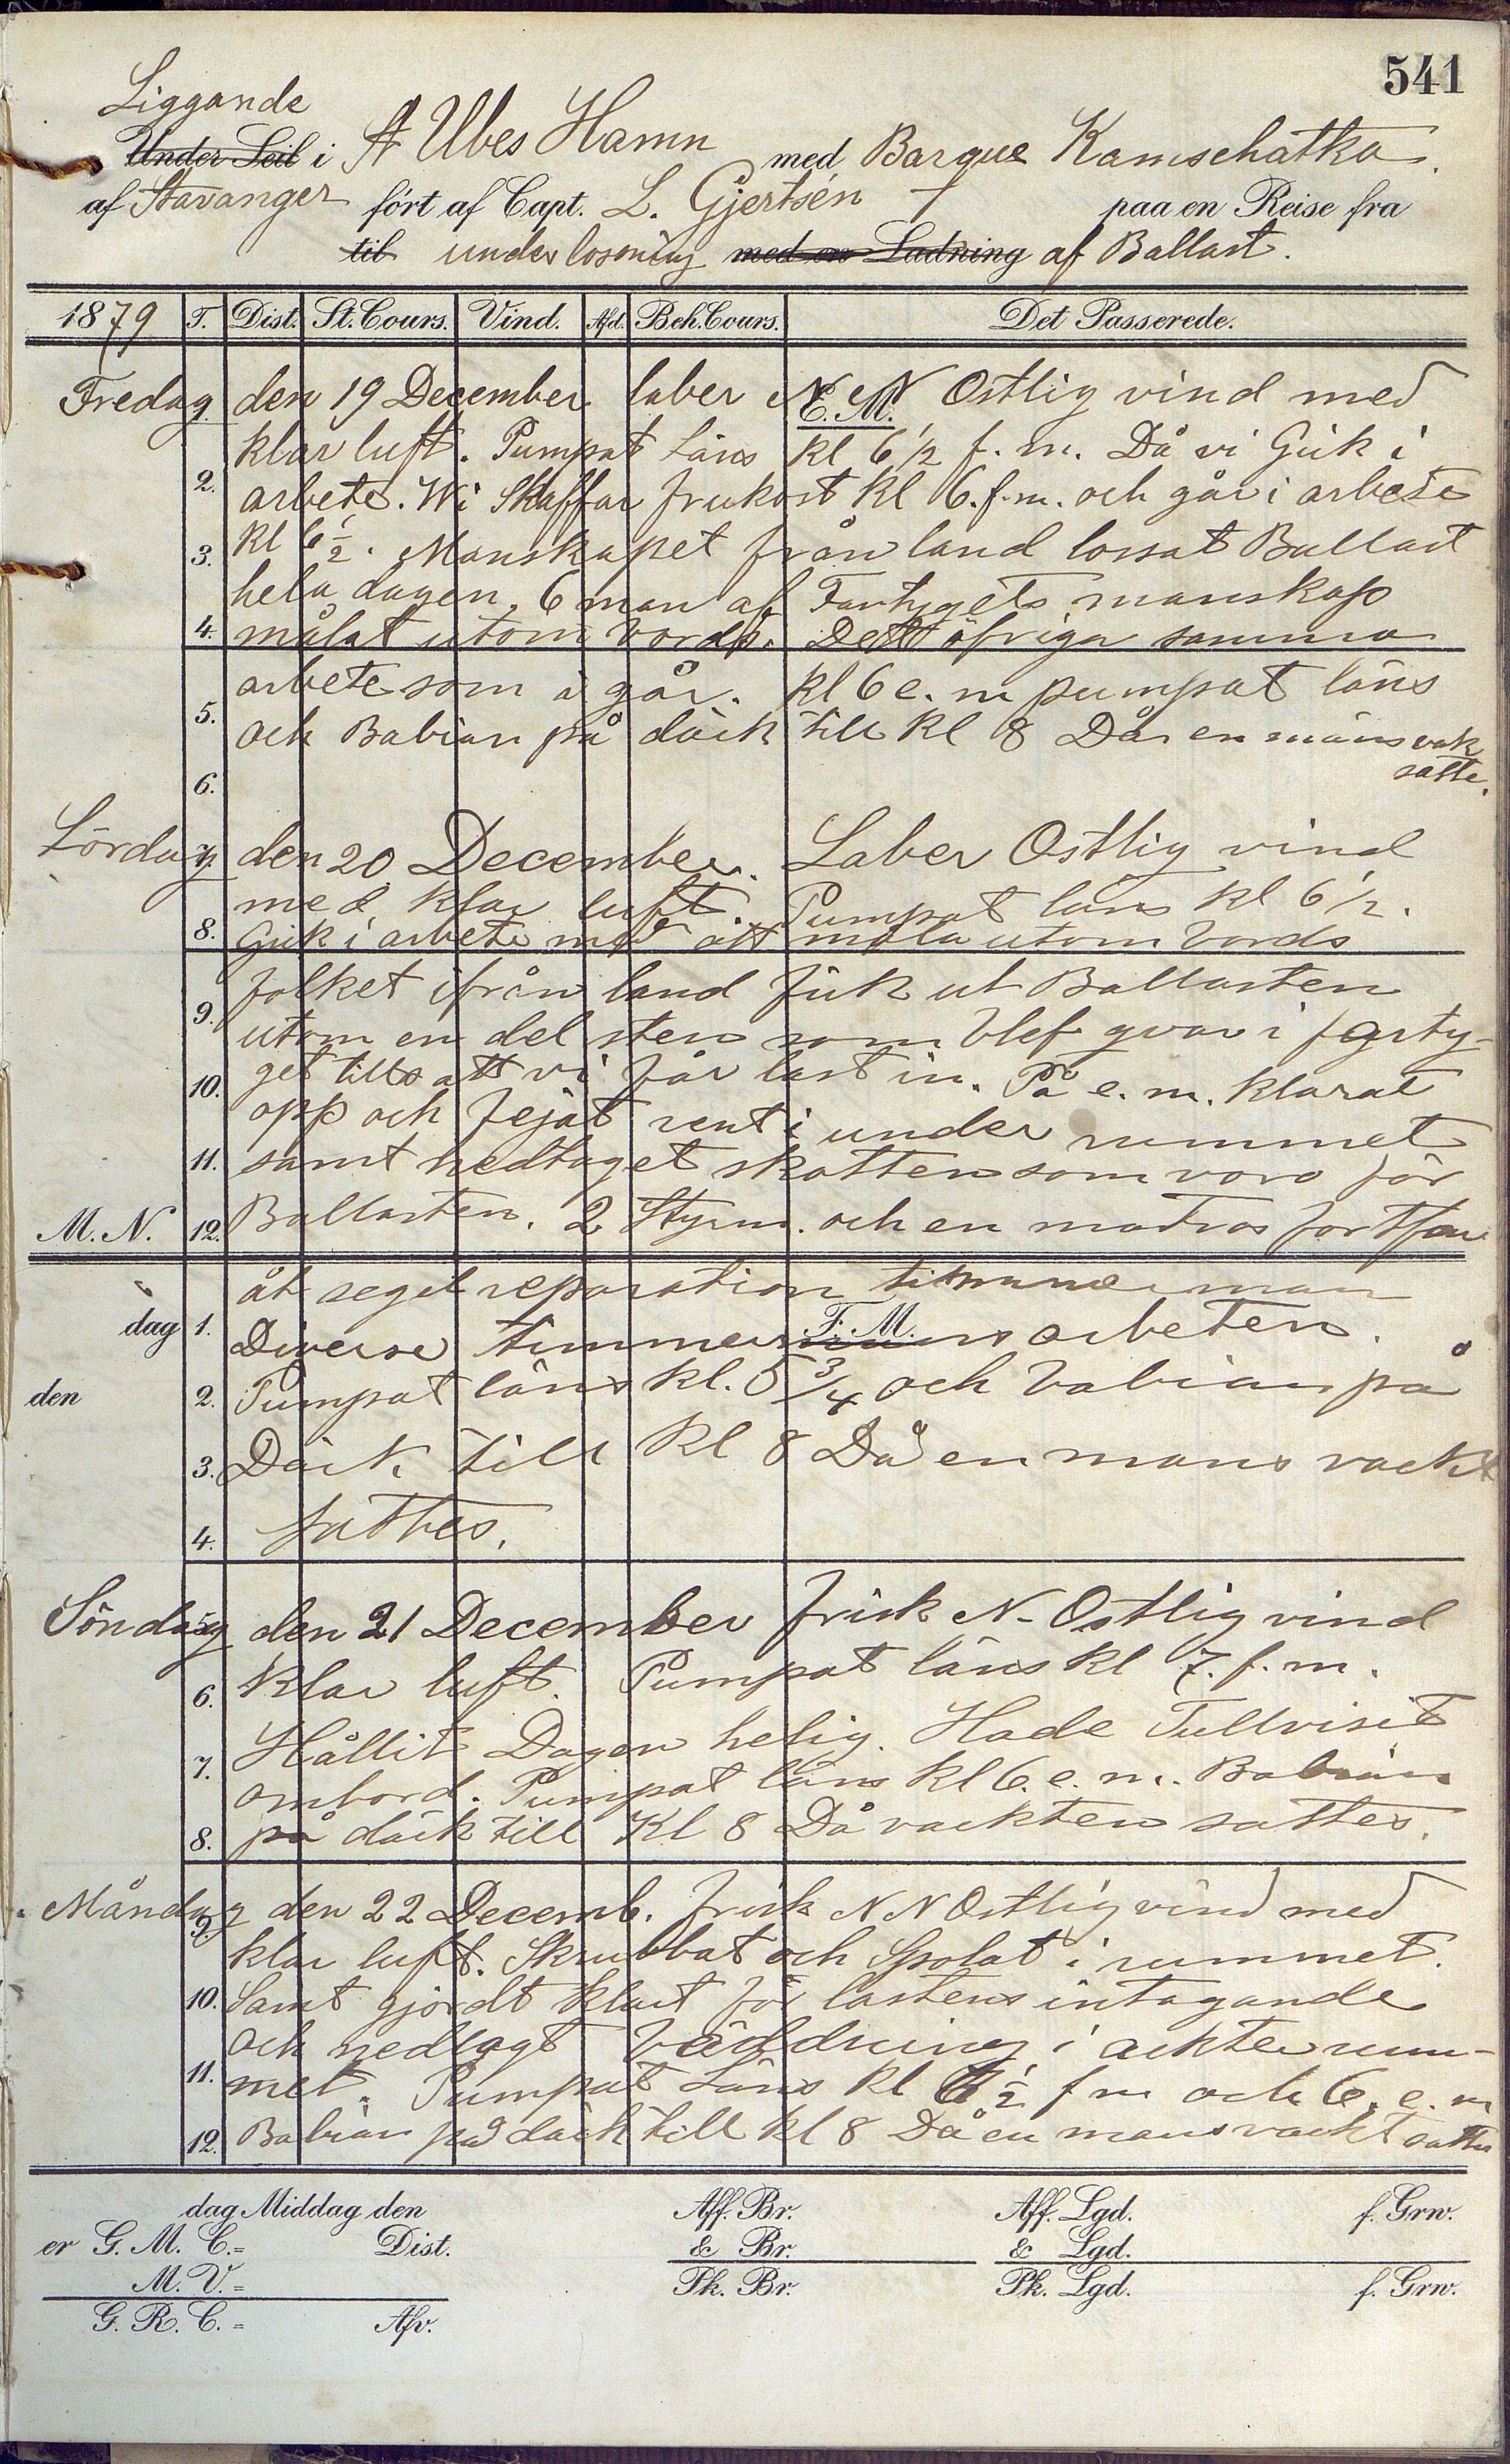 541
Liggande
Under Seil i St Ubes Hamn med Barque Kamschatka.
af Stavanger ført af Capt. L. Gjertsén paa en Reise fra
til under lossning med en Ladning af Ballast.
1879 T. Dist. St. Cours. Vind. Afd. Beh. Cours. Det Passerede.
E. M.
Fredag den 19 December laber N N Ostlig vind med
klar luft. Pumpat Läns kl 6 1/2 f. m. Då vi Gick i
2. arbete. Wi Skaffar frukost kl 6. f. m. och går i arbete
3. kl 6 1/2. Manskapet från land lossat Ballast
hela dagen, 6 man af Fartygets manskap
4. målat utom bords. Dett öfriga samma
arbete som i går. kl 6 e. m pumpat läns
5. och Babian på däck till kl 8 Då en mans vak
satte.
6.
Lördag 7. den 20 December. Laber Ostlig vind
med klar luft. Pumpat läns kl 6 1/2.
8. Gick i arbete med att måla utom bords
folket ifrån land fick ut Ballasten
9. utom en del sten som blef qvar i farty-
10. get tills att vi får last in. På e. m. klarat
opp och fejat rent i under rummet
11. samt nedtaget skotten som voro för
M. N. 12. Ballasten. 2 Styrm. och en matros fortfar
åt segel reparation timmerman
dag 1. F. M. Diverse timmermans arbeten.
den 2. Pumpat läns kl. 5 3/4 och babian på
3. Däck till kl 8 Då en mans vackt
4. sattes.
Söndag 5. den 21 December frisk N-Ostlig vind
6. klar luft. Pumpat läns kl 7. f. m.
7. Hållit Dagen helig. Hade Tullvisit
ombord. Pumpat läns kl 6. e. m. Babian
8. på däck till kl 8 Då vackten sattes.
Måndag 9. den 22 Decemb. frisk N N Ostlig vind med
klar luft. Skrubbat och Spolat i rummet.
10. Samt gjordt klart för lastens intagande
och nedlagt bäddning i ackterrum-
11. met. Pumpat Läns kl 6 1/2 f m och 6. e. m
12. Babian på däck till kl 8 Då en mans vackt sattes
dag Middag den Aff. Br. Aff. Lgd. f. Grw.
er G. M. C.= Dist. & Br. & Lgd.
M. V.= Pk. Br. Pk. Lgd. f. Grw.
G. R. C.= Afv.